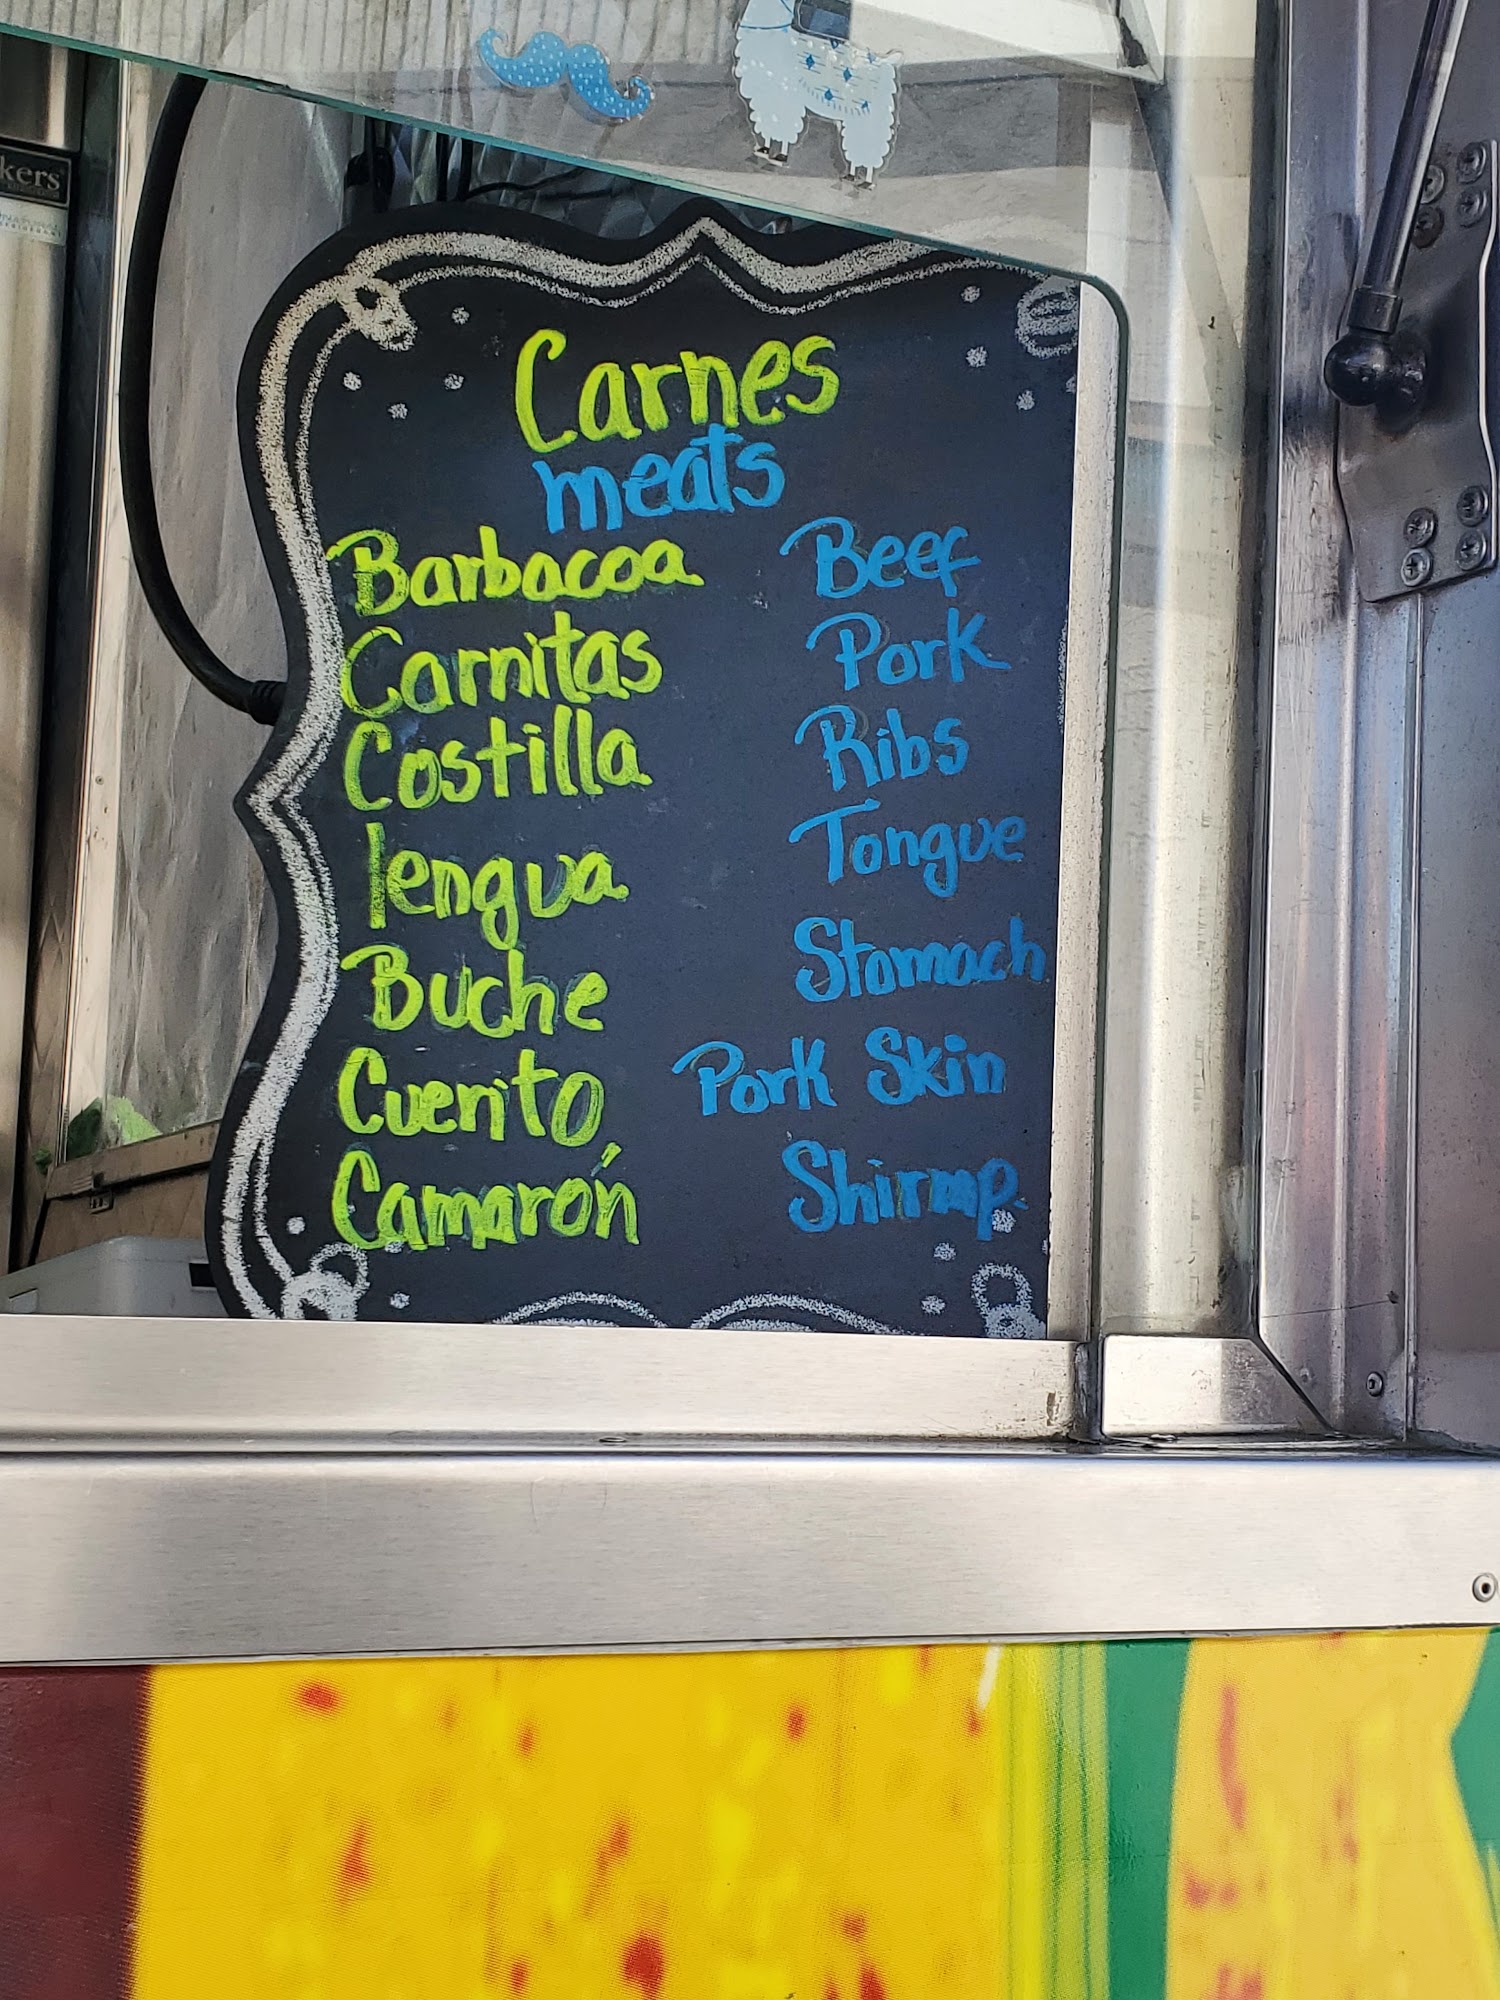 kers
Carnes
meats
Barbacoa Beef
Carnitas Pork
Costilla Ribs
lengua Tongue
Buche Stomach
Cuerito Pork Skin
Camarón Shirmp